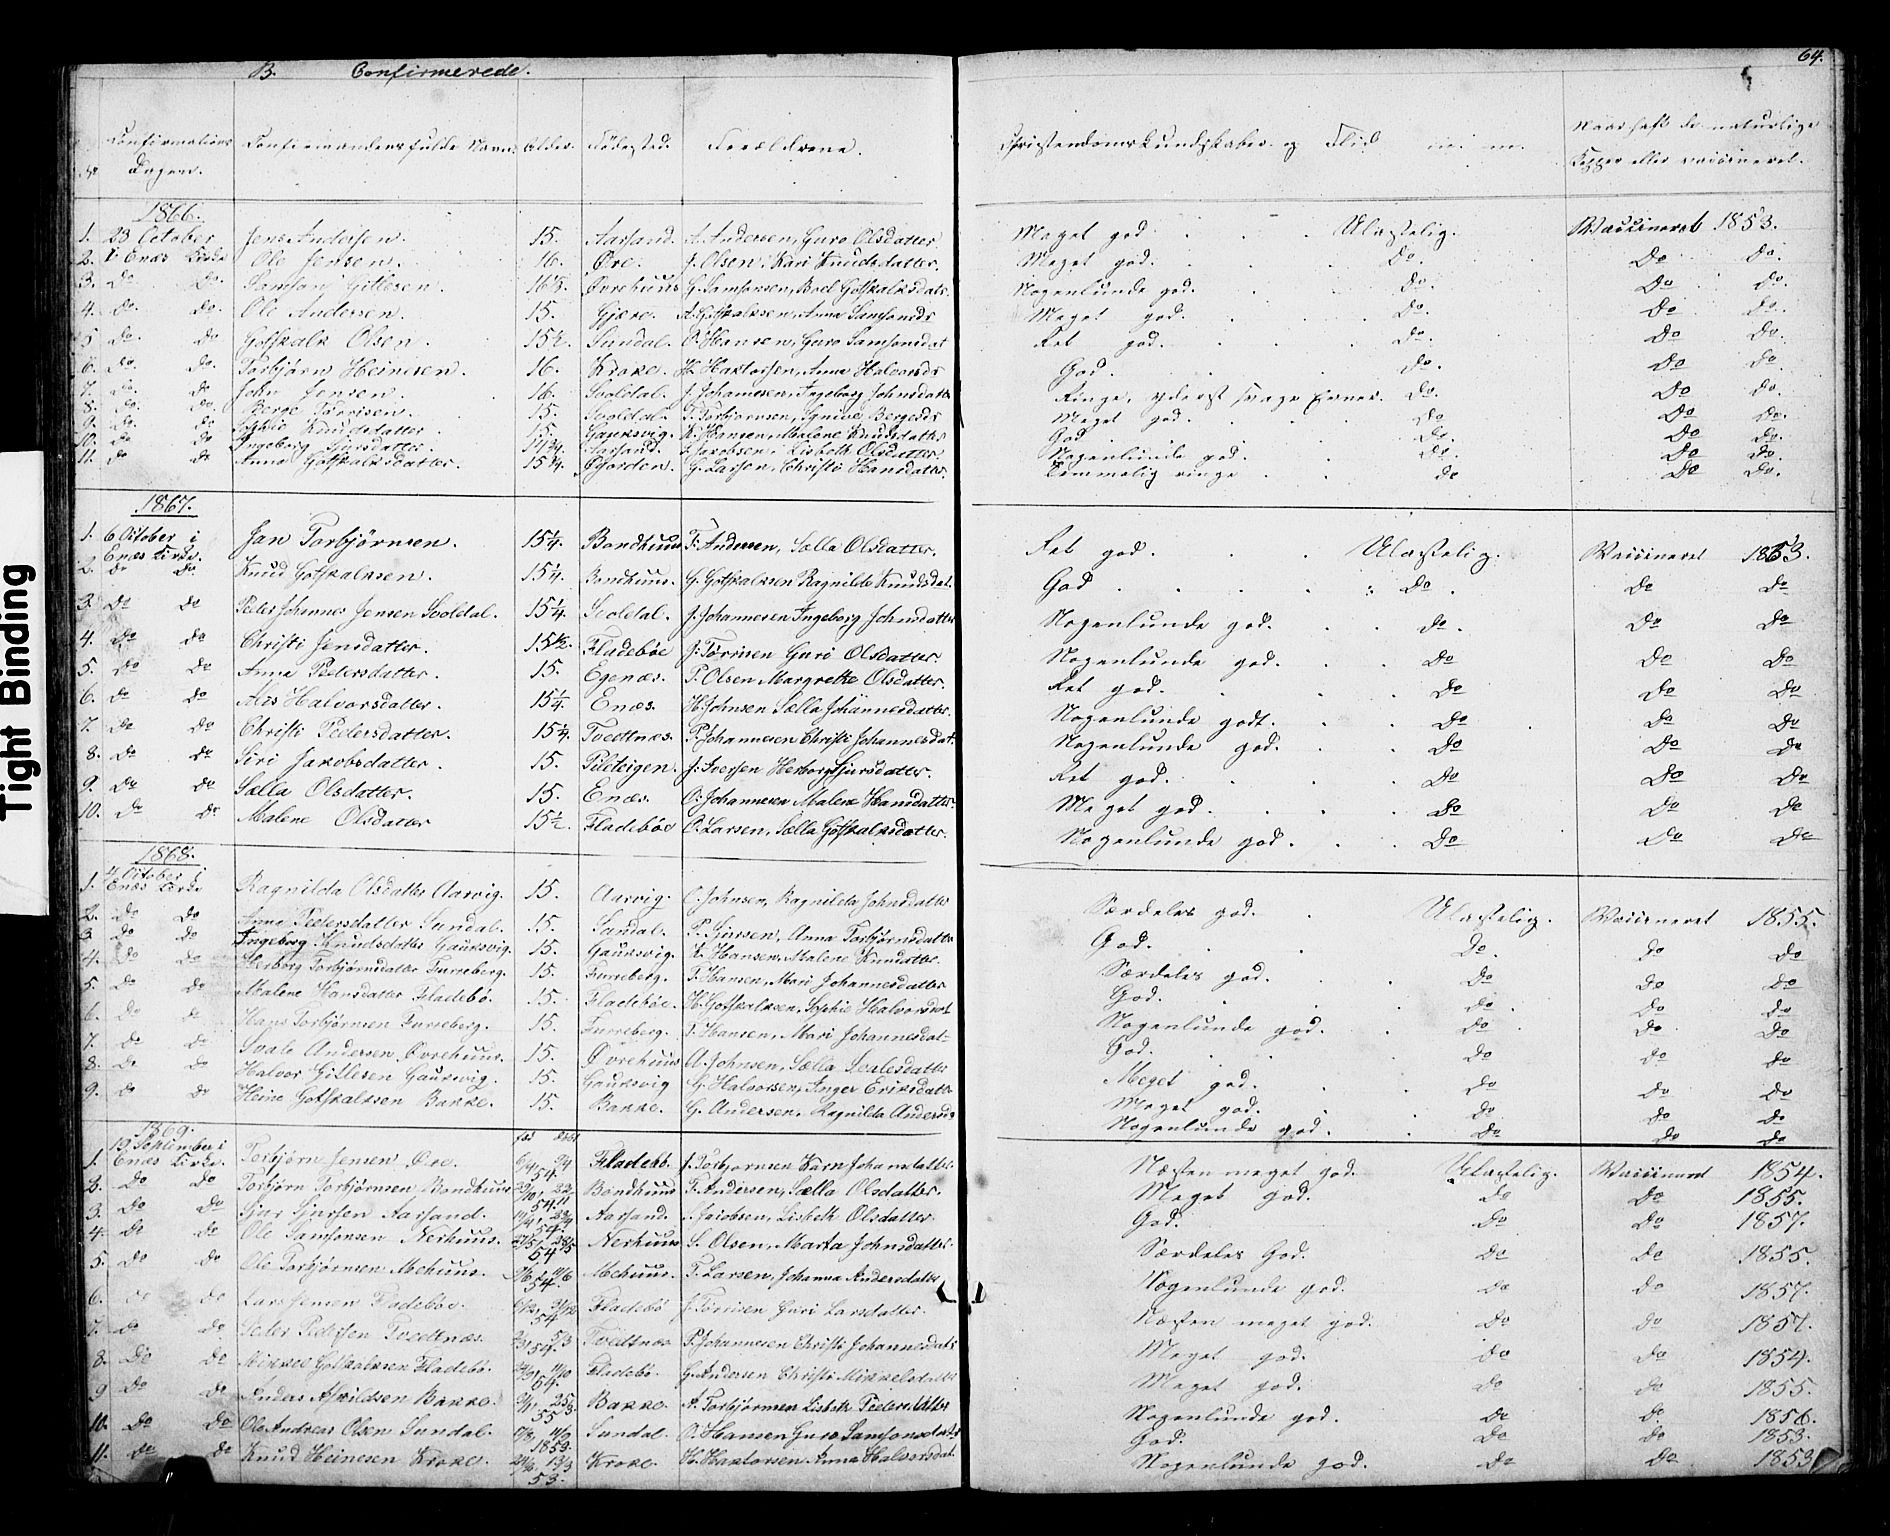 B. Confirmerede.
64.
Confirmations Dagen. Confirmandens fulde Navn. Alder. Fødested. Forældrene. Christendoms Kundskaber og Flid Naar havt de naturlige
Kopper eller vaccineret.
1866.
1. 23 October Jens Andersen. 15. Aarsand. A. Andersen, Guro Olsdatter. Meget god. Ulastelig. Vaccineret 1853.
2. i Enæs Kirke Ole Jensen. 16. Øre. J. Olsen, Kari Knudsdatter. Meget god. Do. Do. Do.
3. Do Do. Samson Gitlesen. Øvrehuus G. Samsonsen, Nogenlunde god. Do. Do Do.
4. Do. Do. Ole Andersen. 15. Gjære. A. Gotskalksen, Anna Samsonsds Meget god. Do. Do Do.
5 Do. Do Gotskalk Olsen. 15½. Sundal. O. Hansen, Guro Samsonsdat Ret god. Do. Do Do.
6. Do. Do. Torbjørn Heinesen. 16. Kroke. H. Haktorsen, Anna Halvorsds God. Do. Do Do.
7. Do. Do John Jensen. 16. Svoldal. J. Johannesen, Ingeborg Johnsdatter Ringe, yderst svage Evner. Do. Do Do.
8. Do. Do. Berge Tørrisen. 15. Svoldal. T. Torbjørnsen, Bergesds Meget god. Do Do Do.
9. Do. Do Knudsdatter. 15. Gauksvig. K. Hansen, Malene Knudsdatter God. Do. Do Do.
10. Do Do Ingeborg Sjursdatter. 14¾. Aarsand. S. Jacobsen, Lisbeth Olsdatter. Nogenlunde god. Do. Do Do.
11. Do Do Anna Gotskalksdatter. 15¼. Øyjorden. G. Larsen, Christi Hansdatter. Temmelig ringe. Do Do Do.
1867.
1. 6 October i Jan Torbjørnsen. 15¼. Bondhuus T. Andersen, Sælla Olsdatter. Ret god. Ulastelig. Vaccineret 1853.
Enæs Kirke.
2. Do Do. Knud Gotskalksen. 15¼. Bondhuus. G. Gotskalksen Ragnilde Knudsdat. God. Do. Do Do
3. Do Do Peter Johannes Jensen Svoldal. 15¼. Svoldal. J. Johannesen Ingeborg Johnsdatter Nogenlunde god. Do. Do Do
4. Do Do Christi Jensdatter. 15½. Fladebøe J. Tørrisen Guri Olsdatter. Nogenlunde god. Do Do Do
5. Do Do Anna Pedersdatter. 15. Egenæs. P. Olsen Margrethe Olsdatter. Ret god. Do Do Do
6. Do Do Halvorsdatter. 15¼. Enæs. H. Johnsen Sælla Johannesdatter. Nogenlunde godt. Do Do Do
7. Do Do Christi Pedersdatter. 15¼. Tvedtnæs. P. Johannesen Christi Johannesdat. Nogenlunde god. Do Do Do
8. Do Do Siri Jakobsdatter. 15. Pilteigen. J. Iversen Herborg Sjursdatter. Ret god. Do Do Do
9. Do Do Sælla Olsdatter. 15. Enæs. O. Johannesen Malene Hansdatter Meget god. Do Do Do
10. Do Do Malene Olsdatter 15½. Fladebøe O. Larsen, Sælla Gotskalksdatter. Nogenlunde god. Do Do Do
1868.
4 October i
1. Enæs Kirke Ragnilda Olsdatter Aarvig. 15. Aarvig. O. Johnsen, Ragnilda Johnsdatter Særdeles god. Ulastelig. Vaccineret 1855.
2. Do Do Anna Pedersdatter Sundal. 15. Sundal. P. Sjursen, Anna Torbjørnsdatter God. Do. Do Do
3. Do Do Ingeborg Knudsdatter Gauksvig. 15. Gauksvig. K. Hansen, Malene Knudsdtr. Særdeles god. Do Do Do
4. Do Do Herborg Torbjørnsdatter Furreberg. 15. Furreberg. T. Hansen, Mari Johannesdatter God. Do Do Do
5. Do Do Malene Hansdatter Fladebø. 15. Fladebøe. H. Gotskalksen, Sophie Halvorsdat Nogenlunde god. Do Do Do
6. Do Do Hans Torbjørnsen Furreberg. 15. Furreberg. T. Hansen, Mari Johannesdat- God. Do Do Do
7. Do Do Svale Andersen Øvrehuus. 15. Øvrehuus A. Johnsen, Sælla Svalesdatter Meget god. Do Do Do
8. Do Do Halvor Gitlesen Gauksvig. 15. Gauksvig G. Halvorsen, Inger Eriksdatter Meget god. Do Do Do
9. Do Do Heine Gotskalksen Bakke. 15. Bakke. G. Andersen, Ragnilda Andersds Nogenlunde god. Do Do Do
1869.
19 September i fød døbt
1. Enæs Kirke. Torbjørn Jensen Øre. 54. Fladebø. J. Torbjørnsen Karn Johansdatter. Næsten meget god. Ulastelig. Vaccineret 1854.
2. Do Do Torbjørn Torbjørnsen Bondhuus 54. Bondhuus T. Andersen, Sælla Olsdatter. Meget god. Do Do 1855.
3. Do Do Sjur Sjursen Aarsand. 54. Aarsand. S. Jacobsen, Lisbeth Olsdatter God. Do Do 1857.
4. Do Do Ole Samsonsen Nerhuus. 54 Nerhuus S. Olsen, Marta Johnsdatter. Særdeles God. Do Do 1855.
5. Do Do Ole Torbjørnsen Mehuus. 54 Mehuus. T. Larsen, Johanna Andersdatter Nogenlunde god. Do Do 1857.
6. Do Do Lars Jensen Fladebøe. 54 Fladebø J. Tørrisen Guri Larsdatter. Næsten meget god. Do Do 1857.
7. Do Do Peder Pedersen Tvedtnæs. 54. Tvedtnæs P. Johannesen Christi Johannesdatr Meget god. Do Do 1854.
8. Do Do Mikkel Gotskalksen Fladebø. 54. Fladebø. G. Andersen Christi Mikkelsdatter Meget god. Do Do 1855.
9 Do Do Andas Asvildsen Bakke. 55 Bakke. A. Torbjørnsen Lisbeth Pedersdatter Nogenlunde god. Do Do 1856.
10. Do Do Ole Andreas Olsen Sundal. 1853. Sundal. O. Hansen Guro Samsonsdatter God. Do Do 1853.
11. Do Do Knud Heinesen Kroke. 53. Kroke. H. Haktorsen Anna Halvorsdat. Nogenlunde god. Do Do 1853
Tight Binding